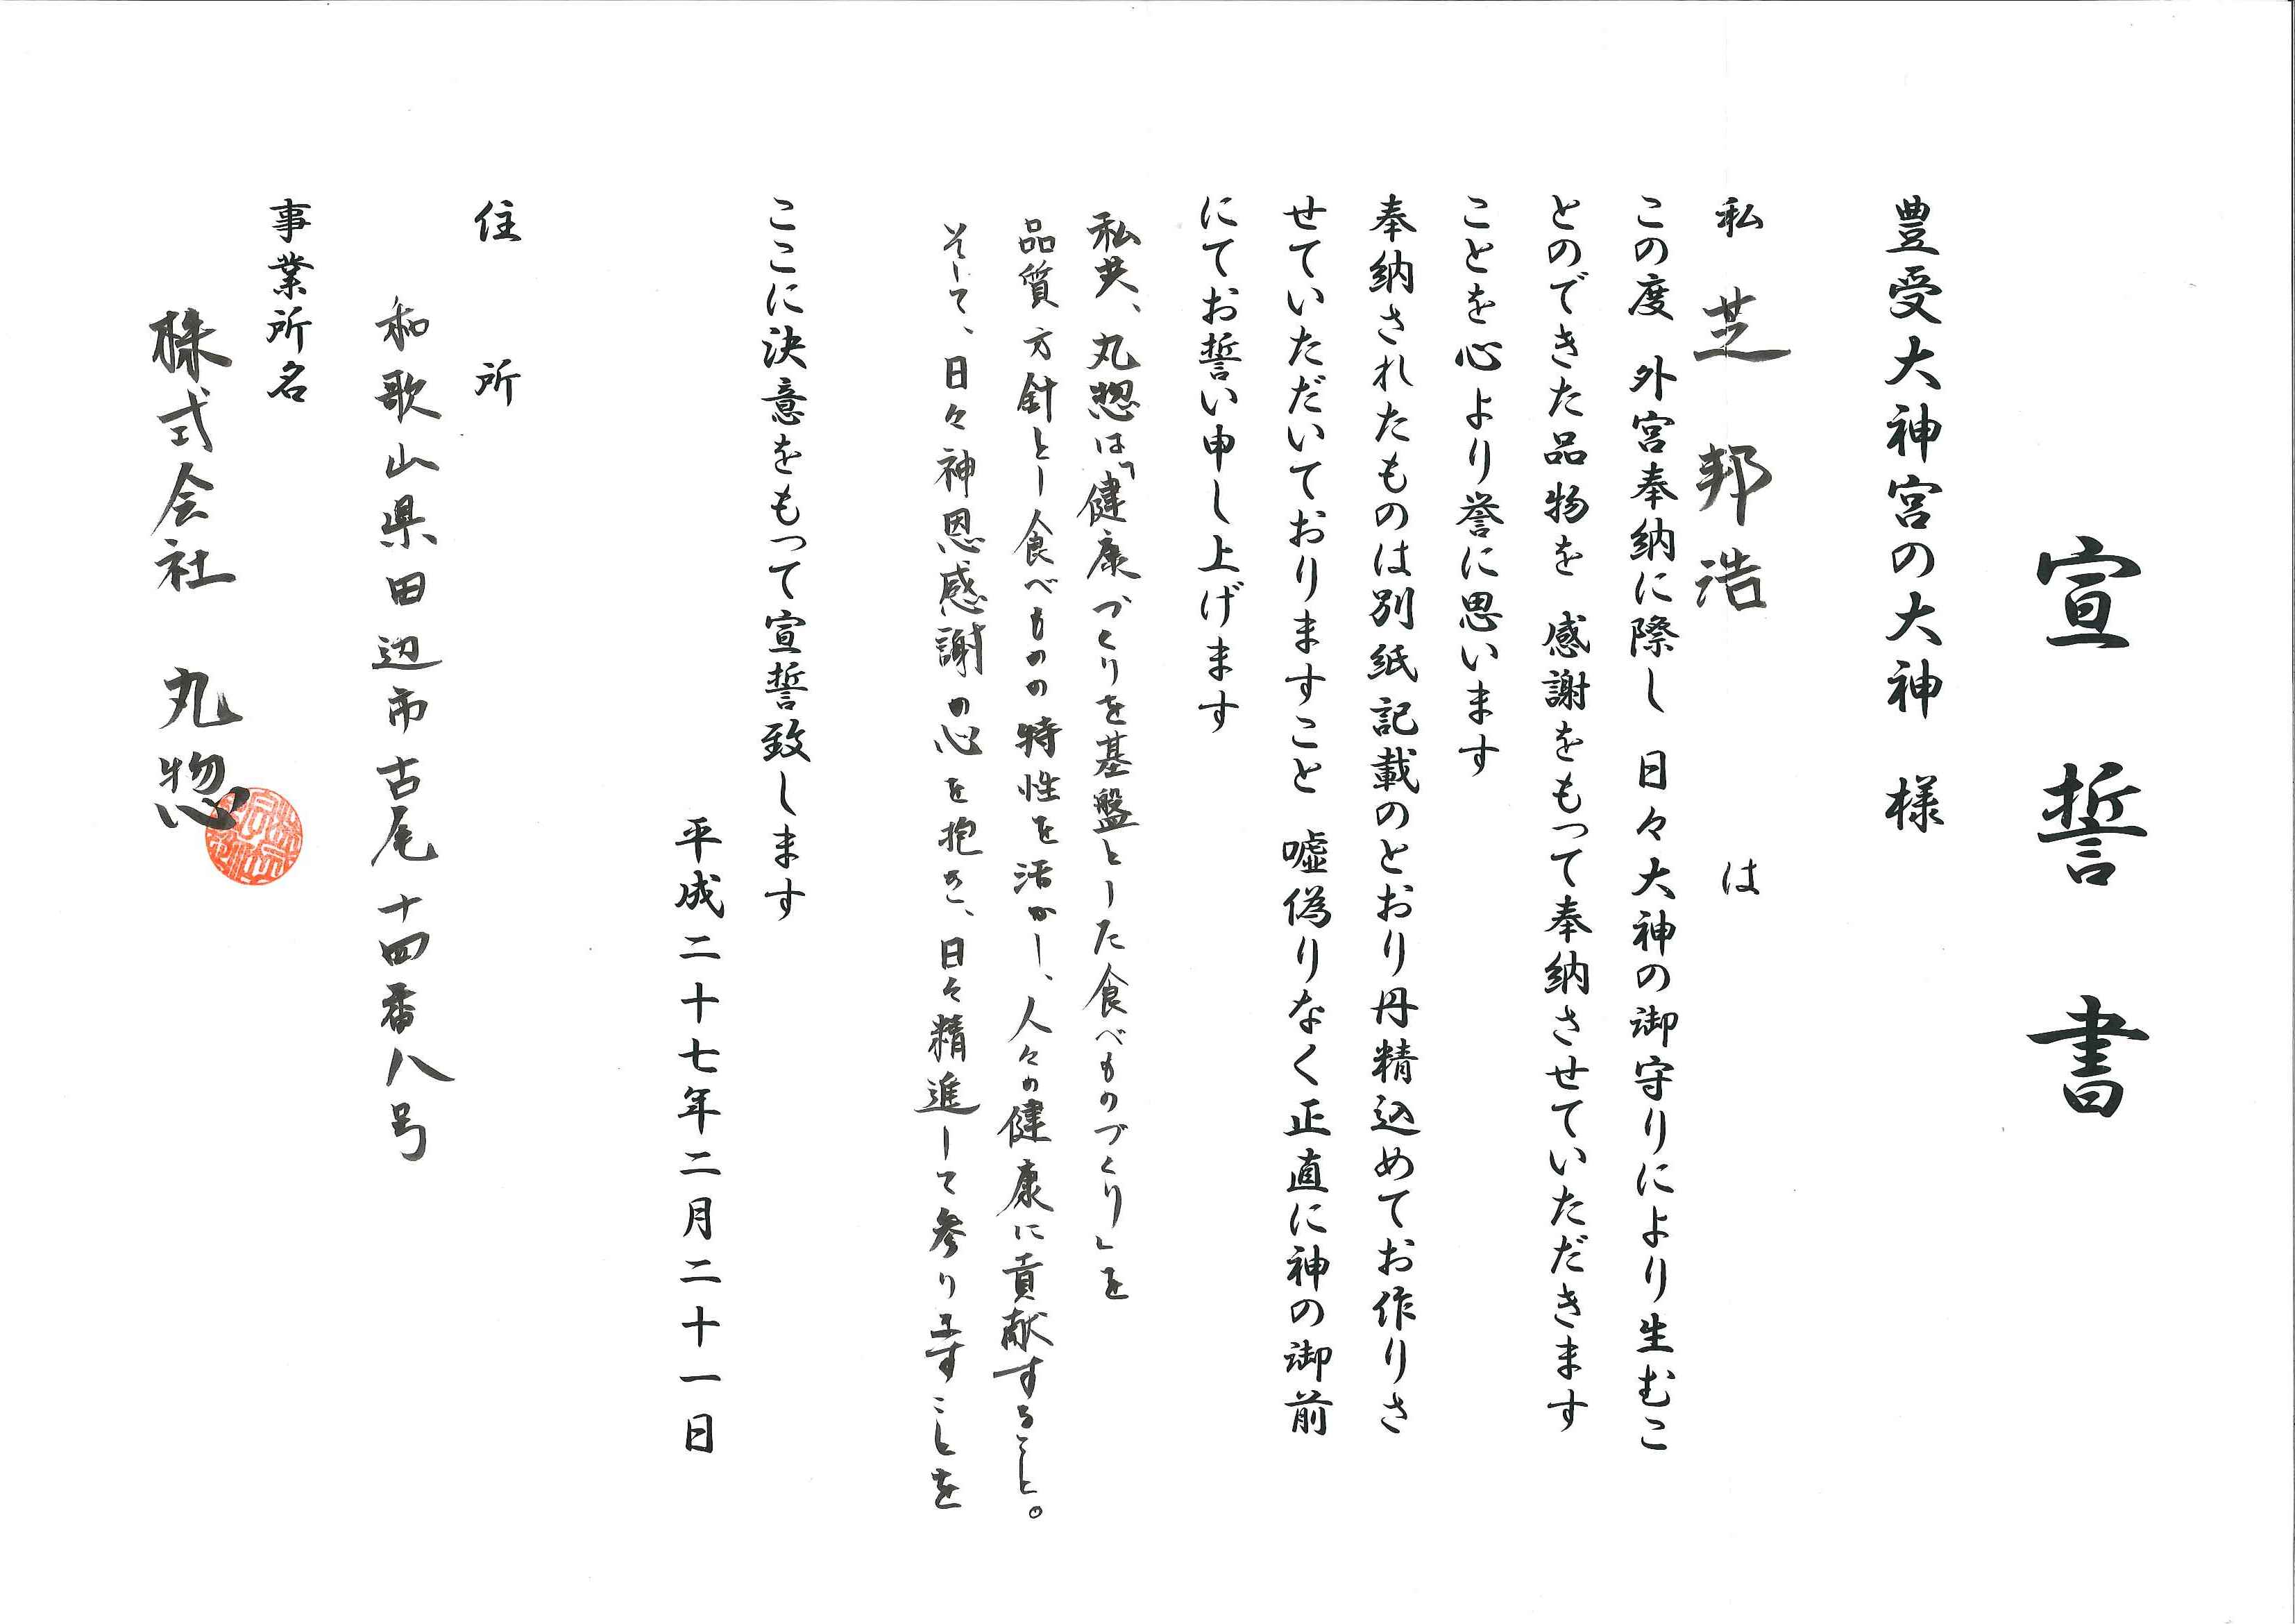 宣誓書
豊受大神宮の大神 様
私 芝 邦浩 は
この度 外宮奉納に際し 日々大神の御守りにより生むこ
とのできた品物を 感謝をもって奉納させていただきます
ことを心より誉に思います
奉納されたものは別紙記載のとおり丹精込めてお作りさ
せていただいておりますこと 嘘偽りなく正直に神の御前
にてお誓い申し上げます
私共、丸惣は「健康づくりを基盤とした食べものづくり」を
品質方針とし食べものの特性を活かし、人々の健康に貢献すること。
そして、日々神恩感謝の心を抱き、日々精進して参りますことを
ここに決意をもって宣誓致します
平成二十七年二月二十一日
住所
和歌山県田辺市古尾十四番八号
事業所名
株式会社 丸惣